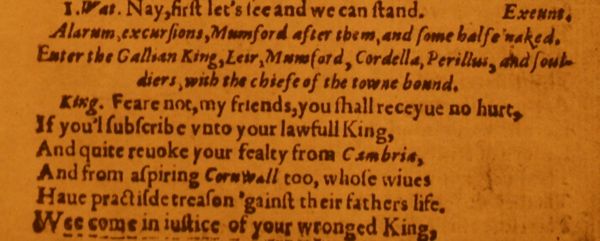 1.Wat. Nay, first let's see and we can stand. Exeunt.
Alarum, excursions, Mumford after them, and some halfe naked.
Enter the Gallian King, Leir, Mumford, Cordella, Perillus, and soul-
diers, with the chiefe of the towne bound.
King. Feare not, my friends, you shall receyue no hurt,
If you'l subscribe vnto your lawfull King,
And quite reuoke your fealty from Cambria,
And from aspiring Cornwall too, whose wiues
Haue practisde treason 'gainst their fathers life.
Wee come in iustice of your wronged King,